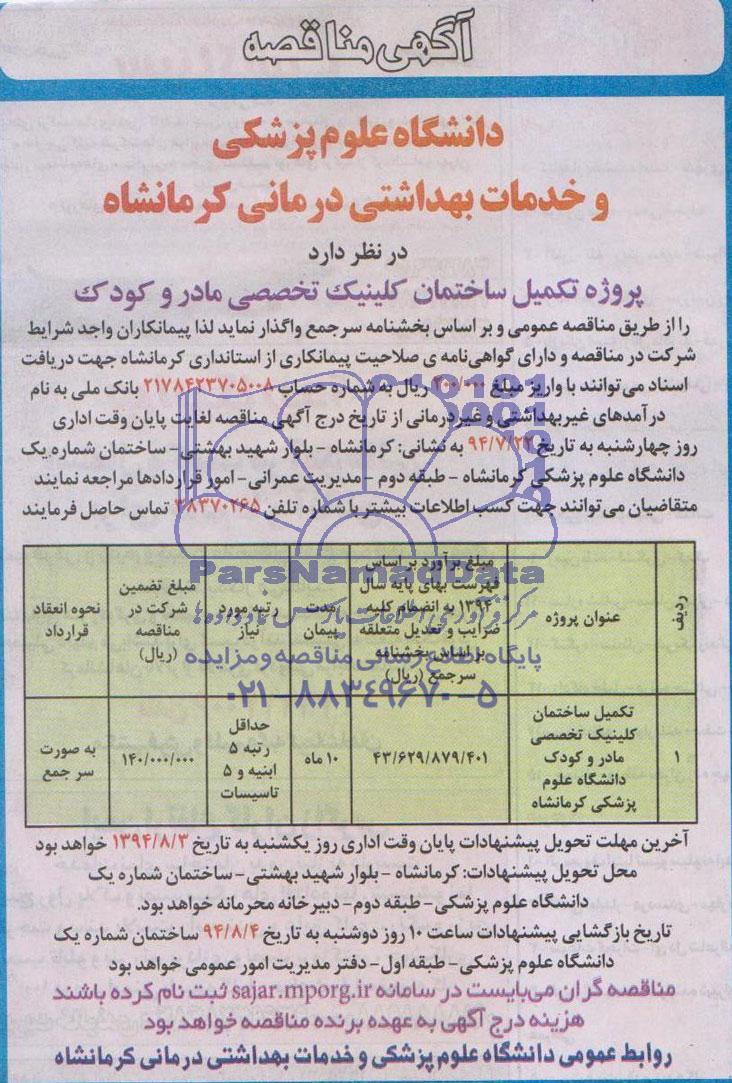 آگهی مناقصه
دانشگاه علوم پزشکی
و خدمات بهداشتی درمانی کرمانشاه
در نظر دارد
پروژه تکمیل ساختمان کلینیک تخصصی مادر و کودک
را از طریق مناقصه عمومی و بر اساس بخشنامه سرجمع واگذار نماید لذا پیمانکاران واجد شرایط
شرکت در مناقصه و دارای گواهی‌نامه ی صلاحیت پیمانکاری از استانداری کرمانشاه جهت دریافت
اسناد می‌توانند با واریز مبلغ ۲۰۰/۰۰۰ ریال به شماره حساب ۲۱۷۸۴۲۳۷۰۵۰۰۸ بانک ملی به نام
درآمدهای غیربهداشتی و غیردرمانی از تاریخ درج آگهی مناقصه لغایت پایان وقت اداری
روز چهارشنبه به تاریخ ۹۴/۷/۲۲ به نشانی: کرمانشاه - بلوار شهید بهشتی - ساختمان شماره یک
دانشگاه علوم پزشکی کرمانشاه - طبقه دوم - مدیریت عمرانی - امور قراردادها مراجعه نمایند
متقاضیان می‌توانند جهت کسب اطلاعات بیشتر با شماره تلفن ۳۸۳۷۰۲۶۵ تماس حاصل فرمایند
ردیف
عنوان پروژه
مبلغ برآورد بر اساس
فهرست بهای پایه سال
۱۳۹۴ به انضمام کلیه
ضرایب و تعدیل متعلقه
بر اساس بخشنامه
سرجمع (ریال)
مدت
پیمان
رتبه مورد
نیاز
مبلغ تضمین
شرکت در
مناقصه
(ریال)
نحوه انعقاد
قرارداد
۱
تکمیل ساختمان
کلینیک تخصصی
مادر و کودک
دانشگاه علوم
پزشکی کرمانشاه
۴۳/۶۲۹/۸۷۹/۴۰۱
۱۰ ماه
حداقل
رتبه ۵
ابنیه و ۵
تاسیسات
۱۴۰/۰۰۰/۰۰۰
به صورت
سر جمع
ParsNamadData
مرکز فرآوری اطلاعات پارس نماد داده ها
پایگاه اطلاع رسانی مناقصه و مزایده
۰۲۱-۸۸۳۴۹۶۷۰-۵
آخرین مهلت تحویل پیشنهادات پایان وقت اداری روز یکشنبه به تاریخ ۱۳۹۴/۸/۳ خواهد بود
محل تحویل پیشنهادات: کرمانشاه - بلوار شهید بهشتی - ساختمان شماره یک
دانشگاه علوم پزشکی - طبقه دوم - دبیرخانه محرمانه خواهد بود.
تاریخ بازگشایی پیشنهادات ساعت ۱۰ روز دوشنبه به تاریخ ۹۴/۸/۴ ساختمان شماره یک
دانشگاه علوم پزشکی - طبقه اول - دفتر مدیریت امور عمومی خواهد بود.
مناقصه گران می‌بایست در سامانه sajar.mporg.ir ثبت نام کرده باشند
هزینه درج آگهی به عهده برنده مناقصه خواهد بود
روابط عمومی دانشگاه علوم پزشکی و خدمات بهداشتی درمانی کرمانشاه